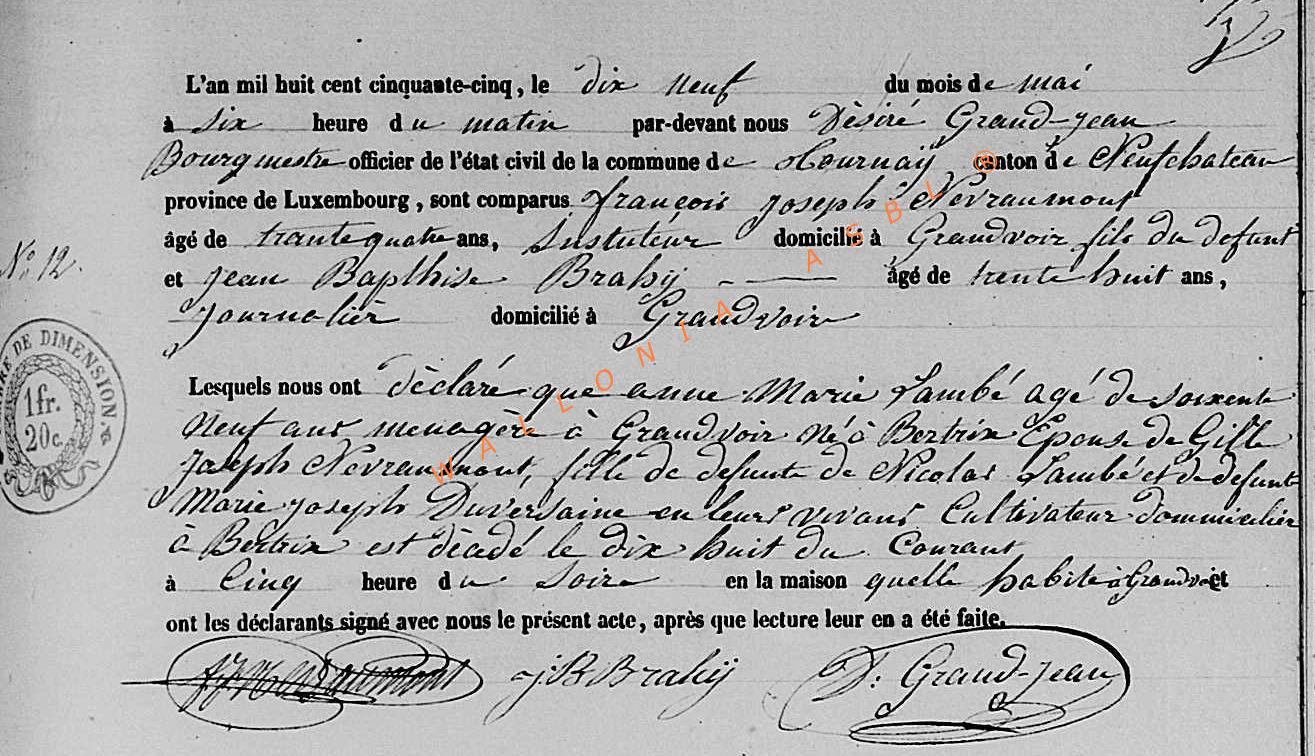 L'an mil huit cent cinquante-cinq, le dix neuf du mois de mai
à six heure du matin par-devant nous Dèsiré Grand-Jean
Bourgmestre officier de l'état civil de la commune de Tournaÿ canton de Neufchateau
province de Luxembourg, sont comparus françois Joseph Nevraumont
âgé de trantequatre ans, Instuteur domicilié à Grandvoir fils du defunt
No. 12.
et Jean Bapthise Brahÿ âgé de trente huit ans,
Journalièr domicilié à Grandvoir
RE DE DIMENSION
1fr.
20c.
Lesquels nous ont dèclaré que anne Marie Lambé agé de soixente
Neuf ans menagère à Grandvoir Né à Bertrix Epouse de Gille
Joseph Nevraumont, fille de defunte de Nicolas Lambé et de defunt
Marie Joseph Duversaine en leurs vivans Cultivateur dommicilièr
à Bertrix est dècadé le dix huit du Courant
à Cinq heure du Soire en la maison quelle habite à Grandvoir et
ont les déclarants signé avec nous le présent acte, après que lecture leur en a été faite.
JB Brahÿ D. Grand-Jean
WALLONIA ASBL ®